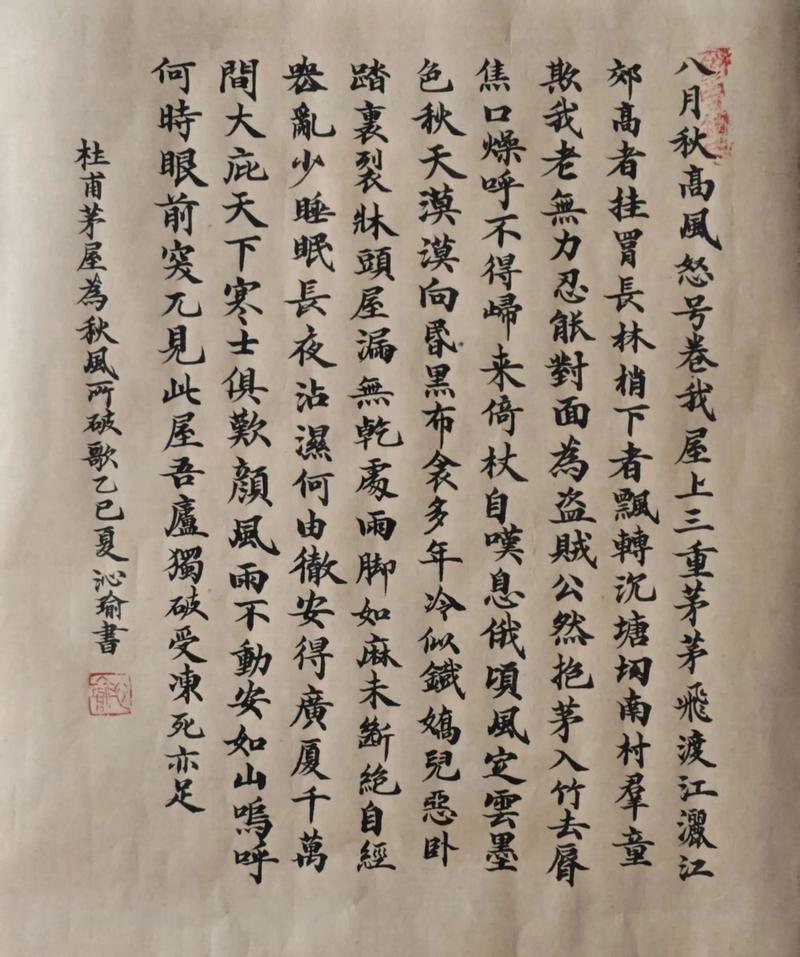 八月秋高風怒号卷我屋上三重茅茅飛渡江灑江
郊高者挂罥長林梢下者飄轉沉塘坳南村羣童
欺我老無力忍能對面為盗賊公然抱茅入竹去脣
焦口燥呼不得歸来倚杖自嘆息俄頃風定雲墨
色秋天漠漠向昬黑布衾多年冷似鐵嬌兒惡卧
踏裏裂牀頭屋漏無乾處雨脚如麻未斷絶自經
喪亂少睡眠長夜沾濕何由徹安得廣厦千萬
間大庇天下寒士俱歡顔風雨不動安如山嗚呼
何時眼前突兀見此屋吾廬獨破受凍死亦足
杜甫茅屋為秋風所破歌乙巳夏沁瑜書